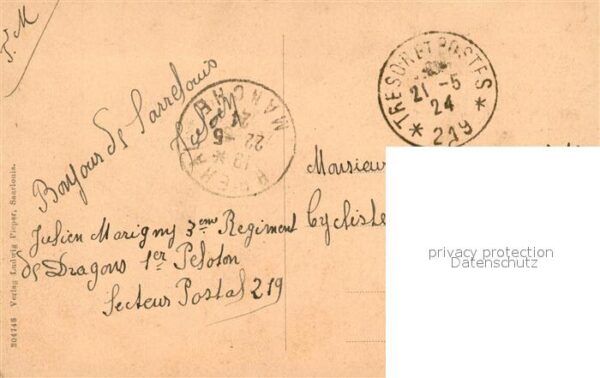 F. M
TRESOR ET POSTES
21 -5
24
* 219 *
MANCHE
22 -5
24
Bonjour de Sarrelouis
Monsieur
Cycliste
Julien Marigny 3eme Regiment
de Dragons 1er Peloton
Secteur Postal 219
Verlag Ludwig Pieper, Saarlouis.
privacy protection
Datenschutz